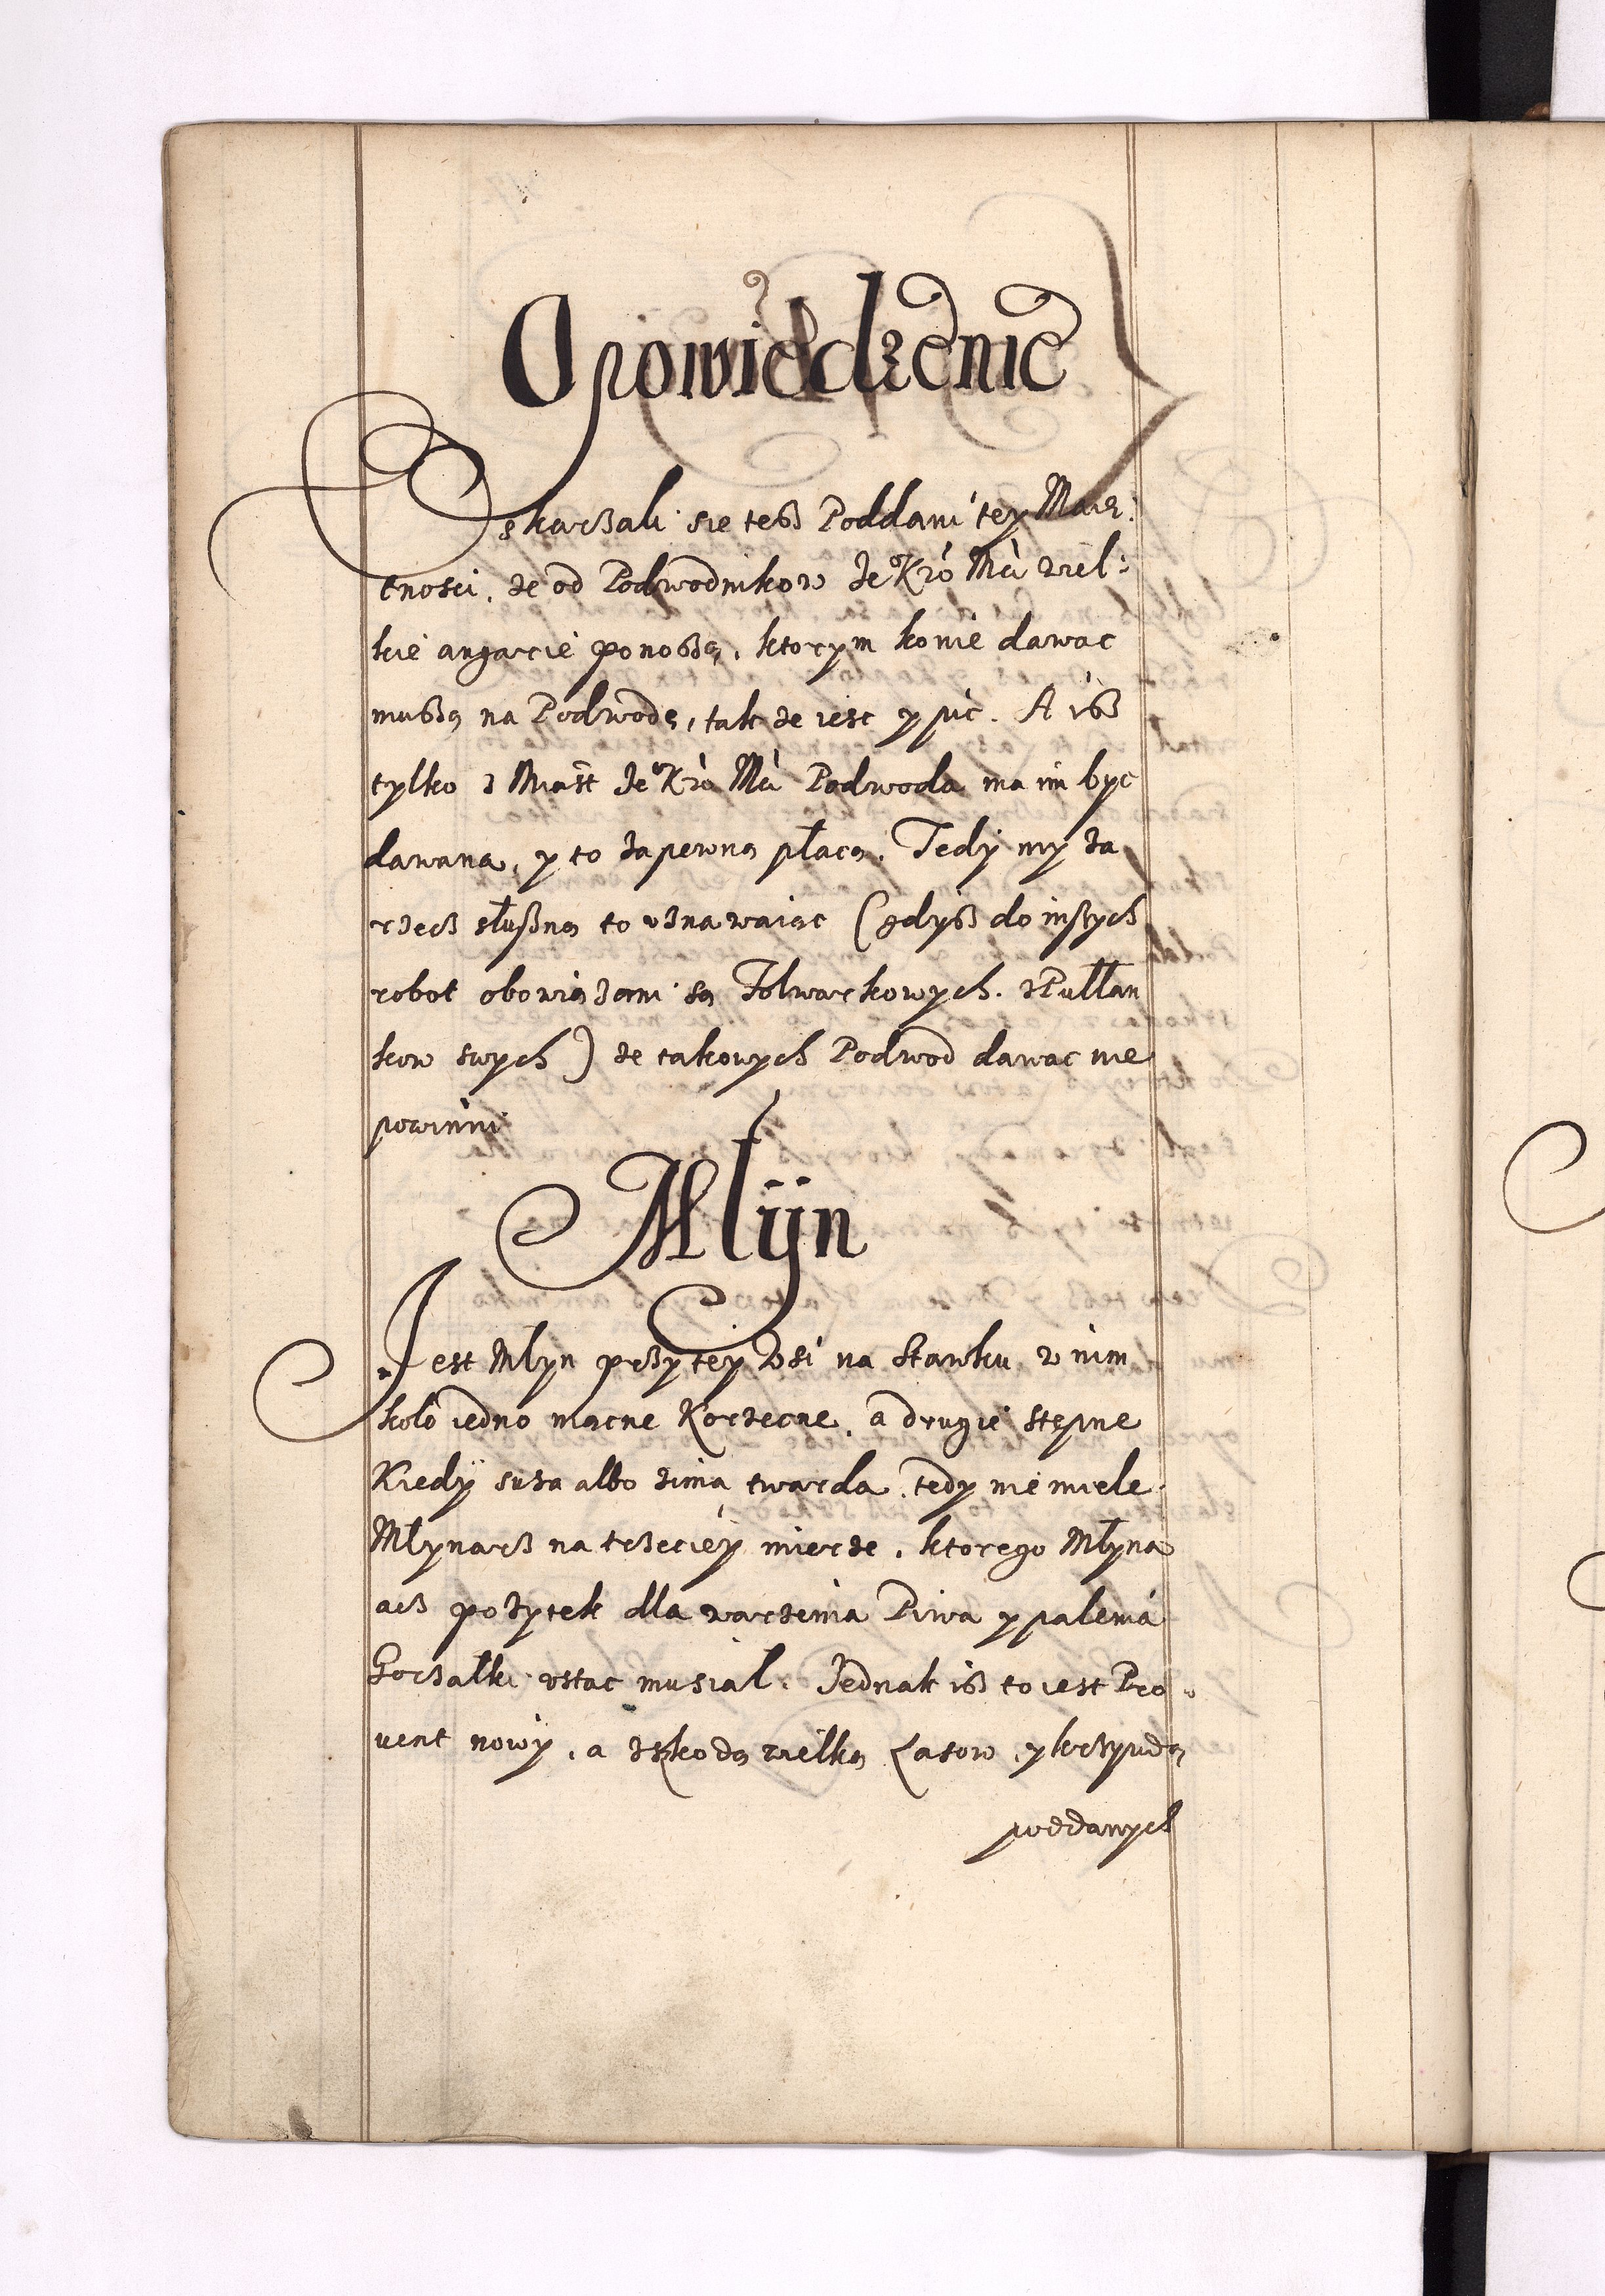 Opowiedzenie
Skarzali sie tesz Poddani tey Maię:
tnosci, ze od Podwodnikow Je° Kro Mci wiel:
kie angarie ponoszą, ktorym konie dawac
muszą na Podwodę, tak ze iesc y pic. A isz
tylko z Miast Je° Kro Mci Podwoda ma im byc
dawana, y to za pewną płacą. Tedÿ my za
rzecz słuszną to uznawaiąc (gdysz do inszych
robot obowiązani są Folwarkowych z Pułłan
kow swych) ze takowych Podwod dawac nie
powinni
Mlÿn
Jest Mlyn przy tey Wsi na Stawku, w nim
koło iedno mącne Korzecne, a drugie stępne
Kiedÿ susza albo zima twarda, tedy nie miele.
Młynarz na trzecieÿ mierze, ktorego Młyna
acz pożytek dla warzenia Piwa y palenia
Gorzałki ustac musiał. Jednak isz to iest Pro
vent nowÿ, a z szkodą wielką Lasow, y krzywdą
poddanych